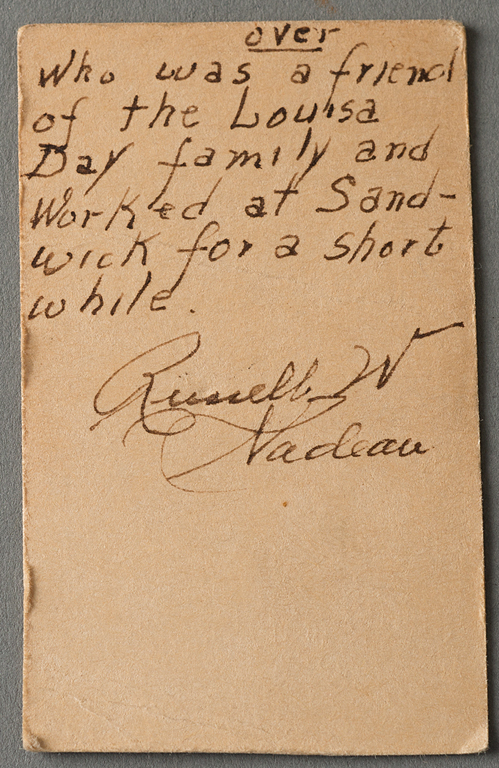 over
Who was a friend
of the Louisa
Day family and
Worked at Sand-
wick for a short
while.
Russell W
Nadeau